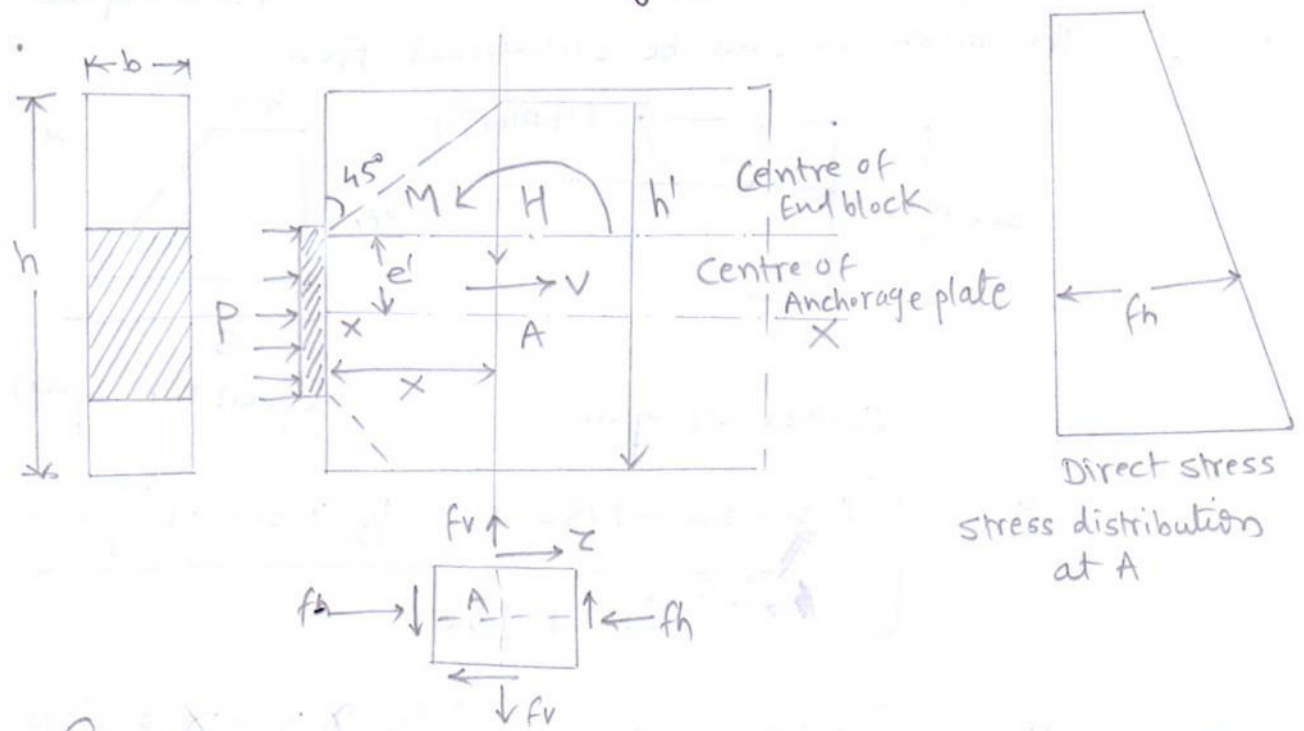 b
45°
M
H
h'
Centre of
End block
h
e'
V
Centre of
Anchorage plate
P
x
A
X
x
fh
Direct stress
stress distribution
at A
fv
τ
fh
A
fh
fv